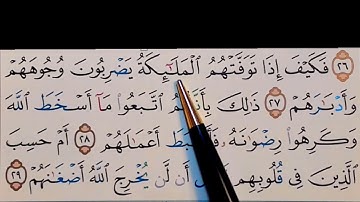 ٢٦ فَكَيْفَ إِذَا تَوَفَّتْهُمُ ٱلْمَلَـٰٓئِكَةُ يَضْرِبُونَ وُجُوهَهُمْ
وَأَدْبَـٰرَهُمْ ٢٧ ذَٰلِكَ بِأَنَّهُمُ ٱتَّبَعُوا۟ مَآ أَسْخَطَ ٱللَّهَ
وَكَرِهُوا۟ رِضْوَٰنَهُۥ أَعْمَـٰلَهُمْ ٢٨ أَمْ حَسِبَ
ٱلَّذِينَ فِى قُلُوبِهِم أَن لَّن يُخْرِجَ ٱللَّهُ أَضْغَـٰنَهُمْ ٢٩